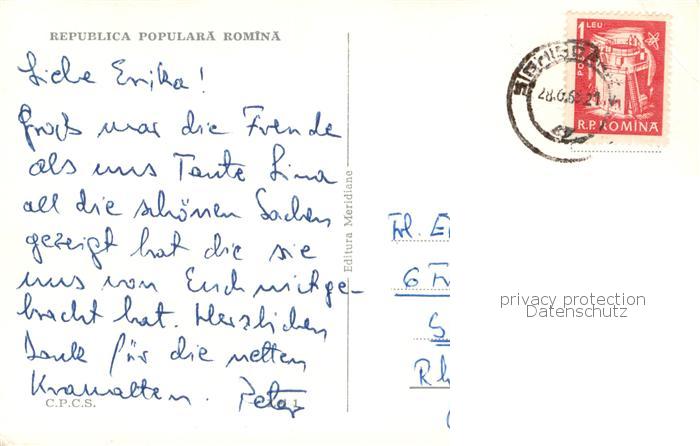 REPUBLICA POPULARĂ ROMÎNĂ
Liebe Erika!
Groß war die Freude
als uns Tante Lina
all die schönen Sachen
gezeigt hat die sie
uns von Euch mitge-
bracht hat. Herzlichen
Dank für die netten
Krawatten. Peter
C.P.C.S.
Editura Meridiane
1 LEU
R.P. ROMINA
28.6.63.21
Frl. E
6 Fr
S
Rh
privacy protection
Datenschutz